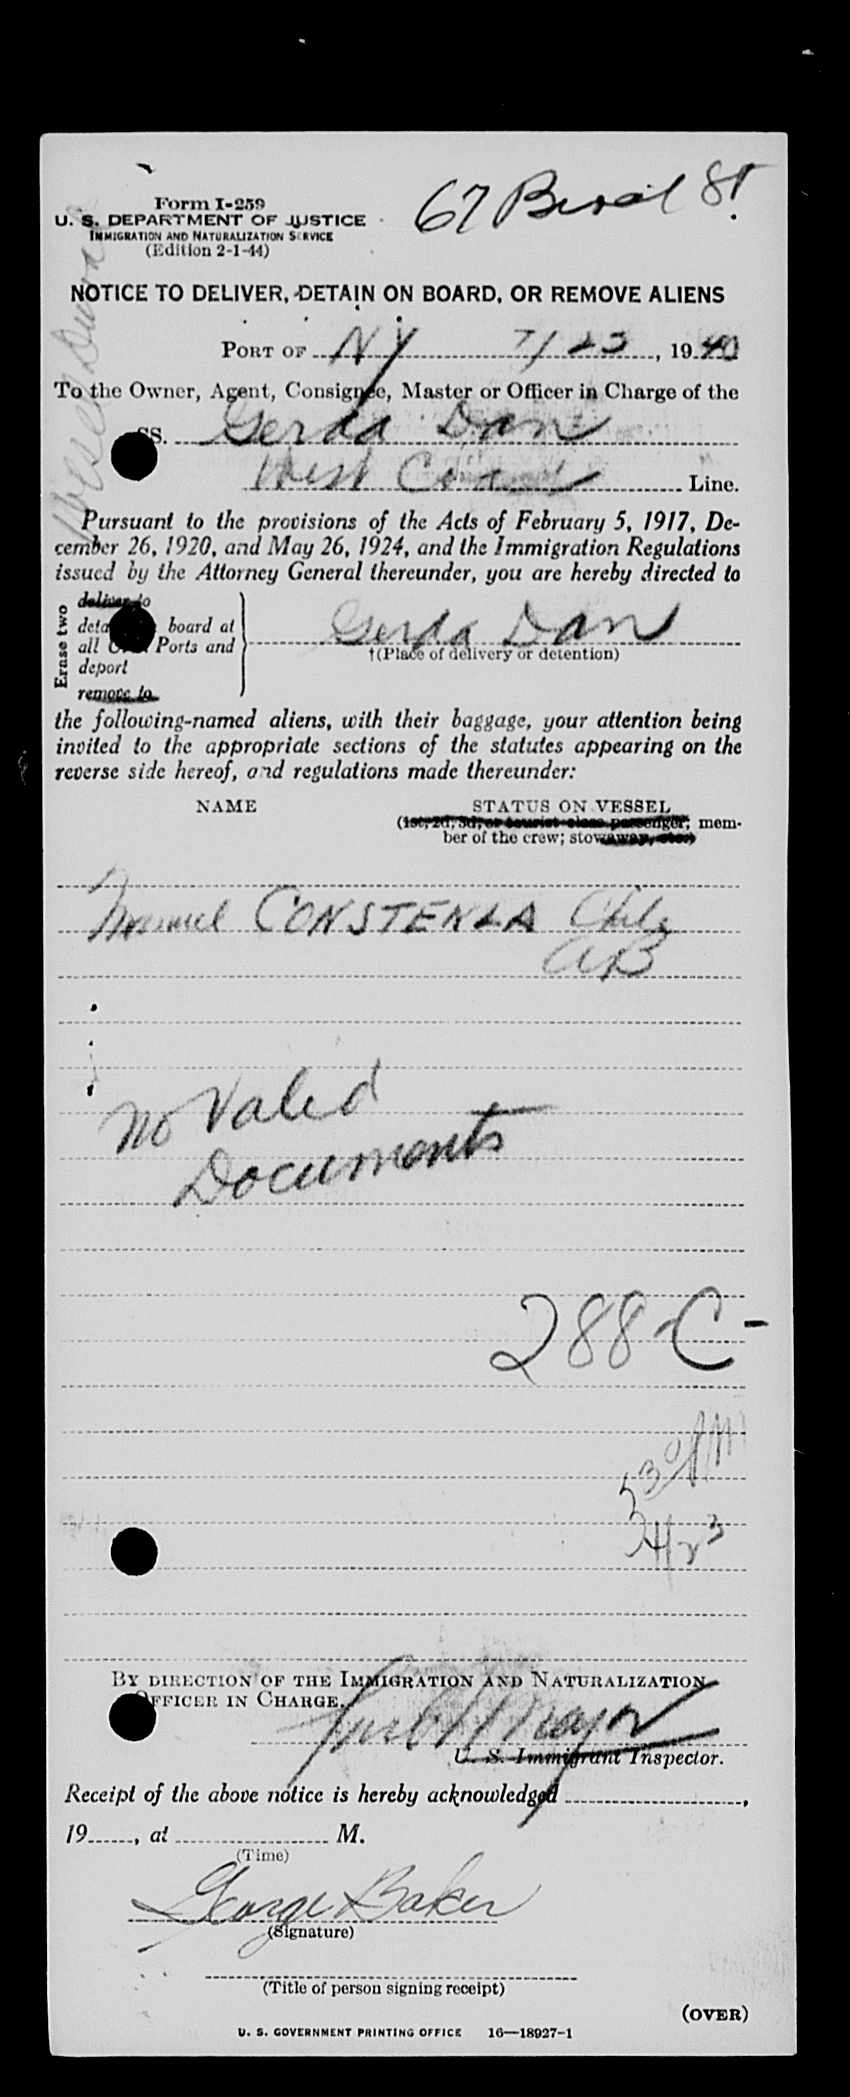 67 St
Form I-259
U. S. DEPARTMENT OF JUSTICE
IMMIGRATION AND NATURALIZATION SERVICE
(Edition 2-1-44)
NOTICE TO DELIVER, DETAIN ON BOARD, OR REMOVE ALIENS
PORT OF NY 7/23, 19
To the Owner, Agent, Consignee, Master or Officer in Charge of the
SS. Gerda Dan
West Line.
Pursuant to the provisions of the Acts of February 5, 1917, De-
cember 26, 1920, and May 26, 1924, and the Immigration Regulations
issued by the Attorney General thereunder, you are hereby directed to
Erase two
deliver to
board at
all Ports and
deport
remove to
Gerda Dan
†(Place of delivery or detention)
the following-named aliens, with their baggage, your attention being
invited to the appropriate sections of the statutes appearing on the
reverse side hereof, and regulations made thereunder:
NAME STATUS ON VESSEL
(1st, 2d, 3d, or tourist class passenger; mem-
ber of the crew; stowaway, etc.)
Manuel CONSTENLA Chile
AB
No Valid
Documents
288-C-
530 PM
7/23
BY DIRECTION OF THE IMMIGRATION AND NATURALIZATION
OFFICER IN CHARGE.
U. S. Immigrant Inspector.
Receipt of the above notice is hereby acknowledged ,
19 , at M.
(Time)
George Baker
(Signature)
(Title of person signing receipt)
(OVER)
U. S. GOVERNMENT PRINTING OFFICE 16—18927-1